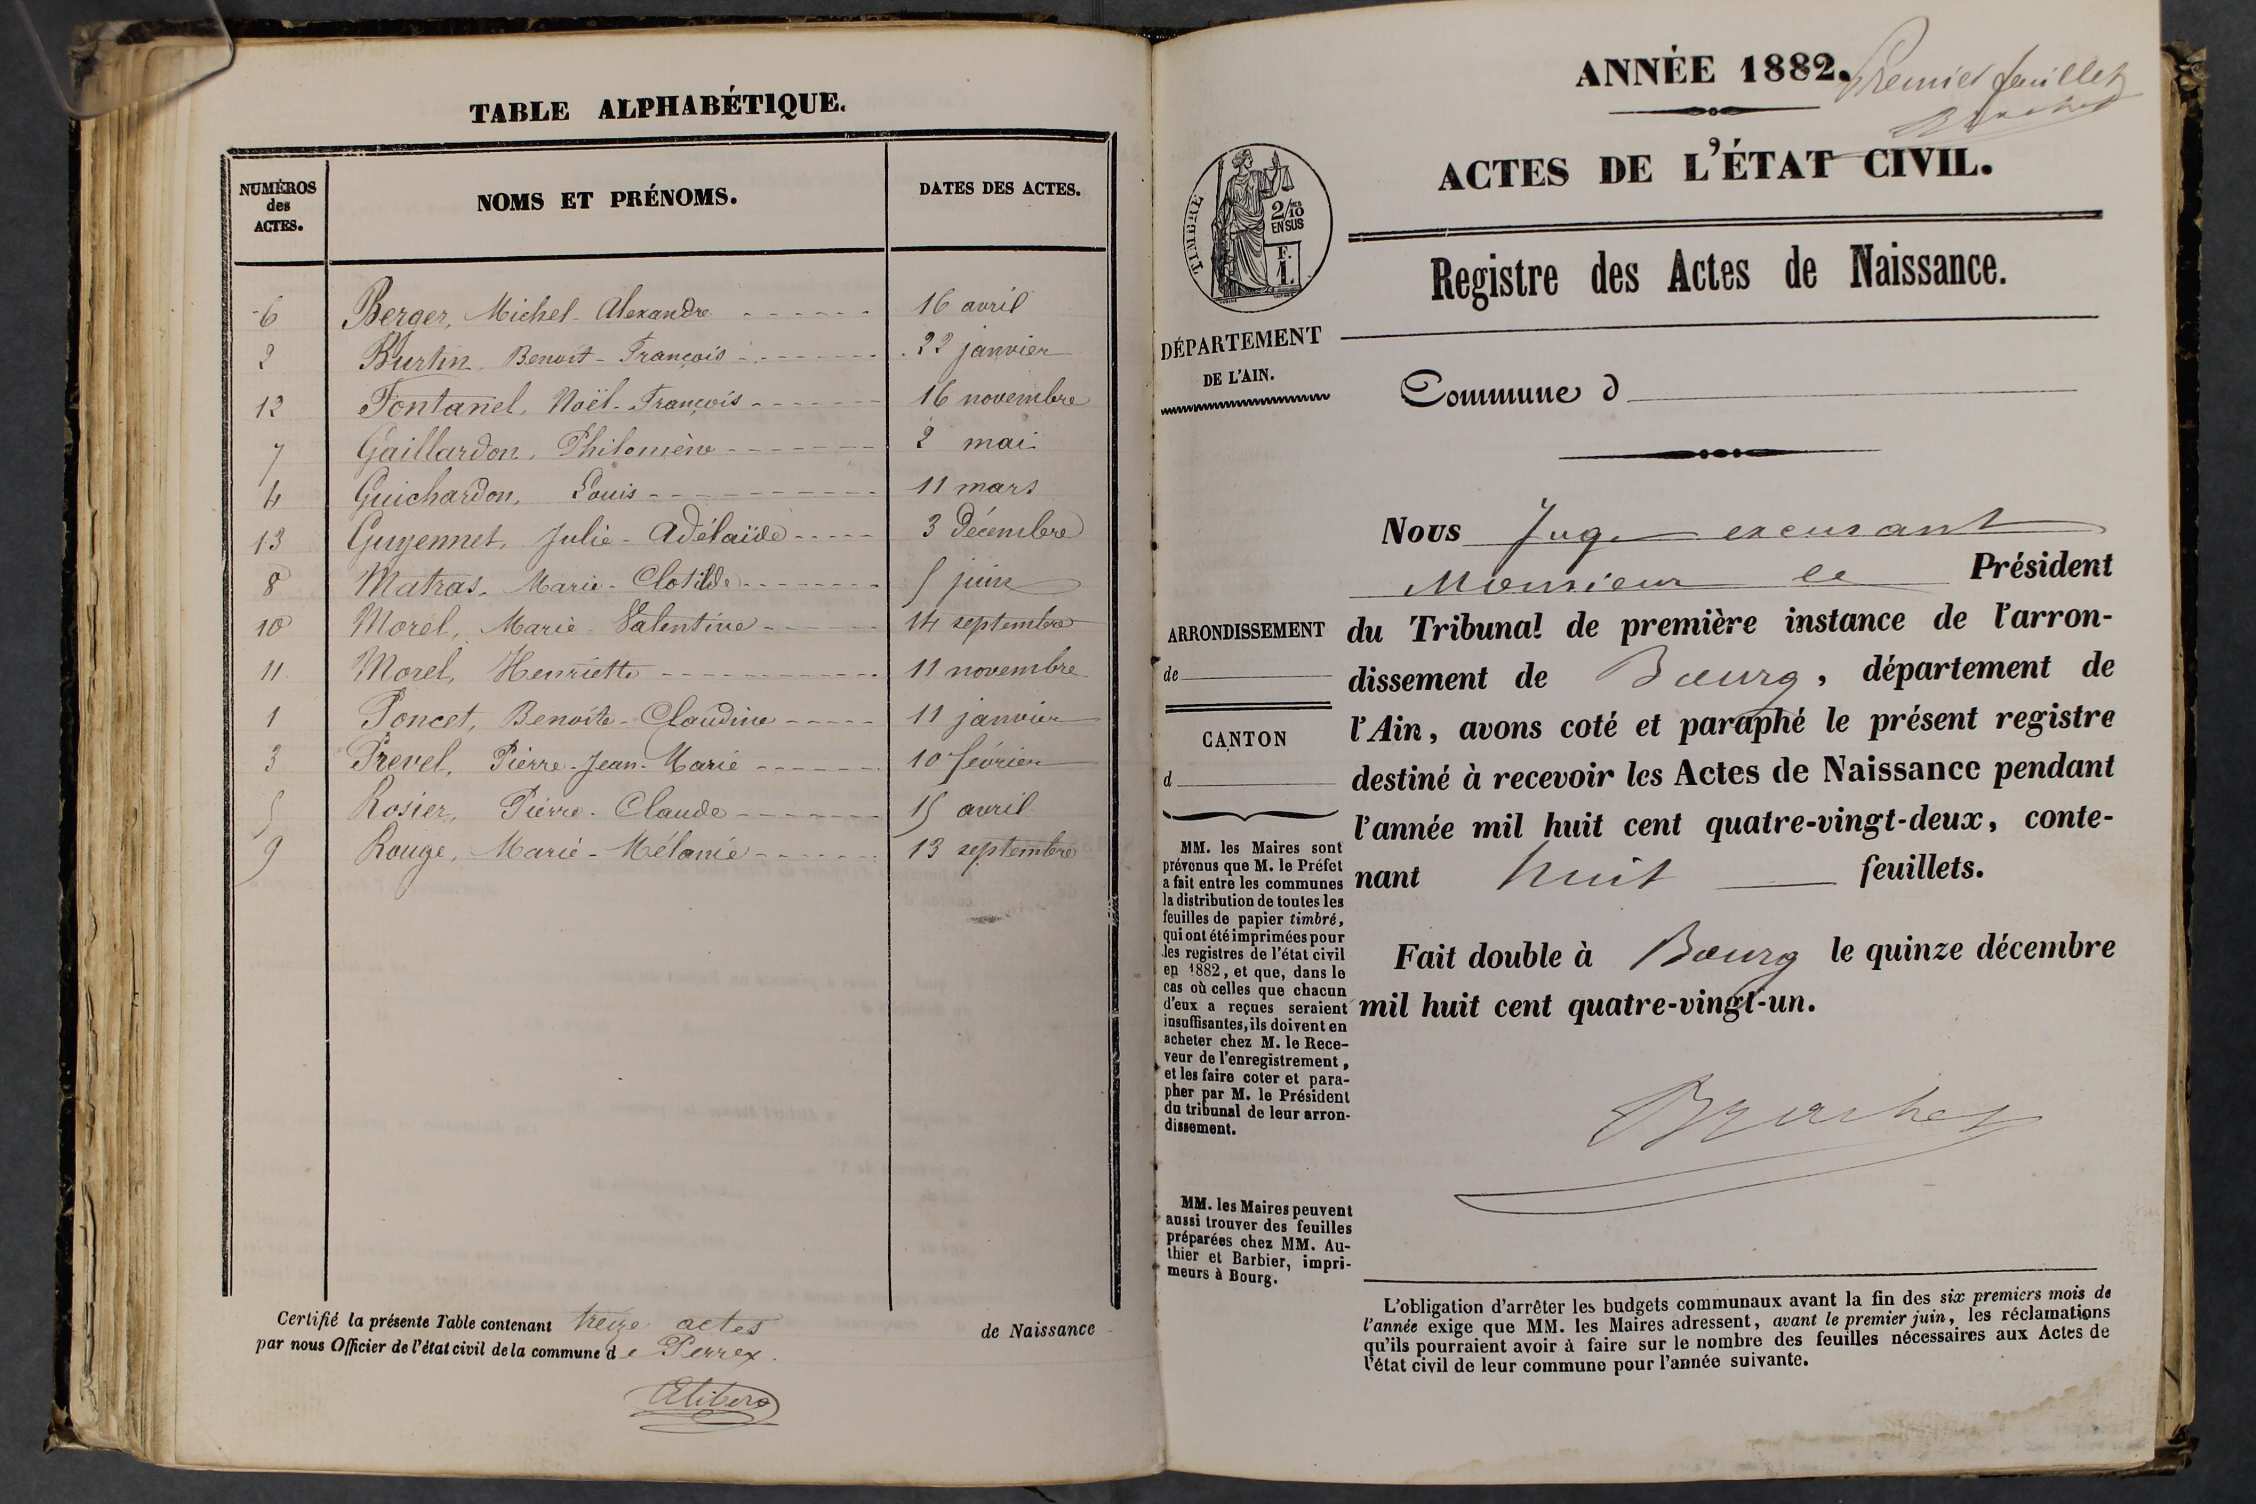 TABLE ALPHABÉTIQUE.
NUMÉROS des ACTES.
NOMS ET PRÉNOMS.
DATES DES ACTES.
6 Berger, Michel-Alexandre 16 avril
2 Burtin, Benoit-François 22 janvier
12 Fontanel, Noël-François 16 novembre
7 Gaillardon, Philomène 2 mai
4 Guichardon, Louis 11 mars
13 Guyennet, Julie-Adélaïde 3 Décembre
8 Matras, Marie-Clotilde 5 juin
10 Morel, Marie-Valentine 14 septembre
11 Morel, Henriette 11 novembre
1 Poncet, Benoîte-Claudine 11 janvier
3 Prevel, Pierre-Jean-Marie 10 février
5 Rosier, Pierre-Claude 15 avril
9 Rouge, Marie-Mélanie 13 septembre
Certifié la présente Table contenant treize actes de Naissance
par nous Officier de l'état civil de la commune de Perrex.
ANNÉE 1882.
Premier feuillet
ACTES DE L'ÉTAT CIVIL.
TIMBRE
2/10 EN SUS
F. 1.
Registre des Actes de Naissance.
DÉPARTEMENT
DE L'AIN.
Commune d
Nous Juge excusant
Monsieur le Président
du Tribunal de première instance de l'arron-
dissement de Bourg, département de
l'Ain, avons coté et paraphé le présent registre
destiné à recevoir les Actes de Naissance pendant
l'année mil huit cent quatre-vingt-deux, conte-
nant huit feuillets.
Fait double à Bourg le quinze décembre
mil huit cent quatre-vingt-un.
ARRONDISSEMENT
de
CANTON
d
MM. les Maires sont
prévenus que M. le Préfet
a fait entre les communes
la distribution de toutes les
feuilles de papier timbré,
qui ont été imprimées pour
les registres de l'état civil
en 1882, et que, dans le
cas où celles que chacun
d'eux a reçues seraient
insuffisantes, ils doivent en
acheter chez M. le Rece-
veur de l'enregistrement,
et les faire coter et para-
pher par M. le Président
du tribunal de leur arron-
dissement.
MM. les Maires peuvent
aussi trouver des feuilles
préparées chez MM. Au-
thier et Barbier, impri-
meurs à Bourg.
L'obligation d'arrêter les budgets communaux avant la fin des six premiers mois de
l'année exige que MM. les Maires adressent, avant le premier juin, les réclamations
qu'ils pourraient avoir à faire sur le nombre des feuilles nécessaires aux Actes de
l'état civil de leur commune pour l'année suivante.